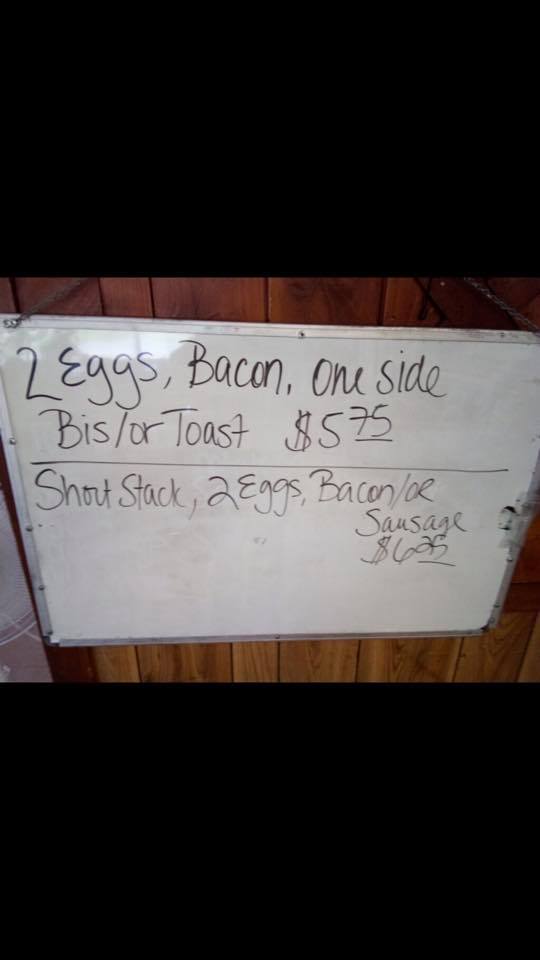 2 Eggs, Bacon, One side
Bis/or Toast $5 75
Short Stack, 2 Eggs, Bacon/or
Sausage
$6 25